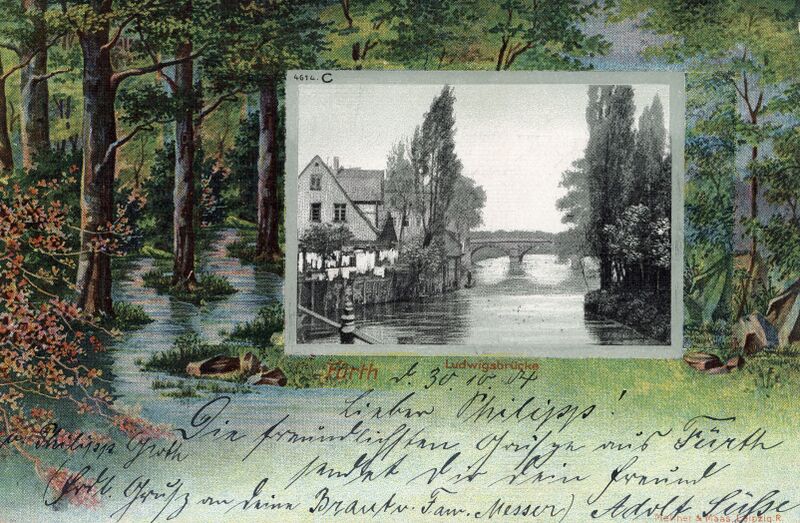 4614. C
Fürth Ludwigsbrücke
d. 30 10. 04
Lieber Philipp!
Die freundlichsten Grüße aus Fürth
sendet Dir dein Freund
Adolf Süße
Philipp Groth
(Frdl. Gruß an deine Braut u. Fam. Messer)
Zenner & Maas, Leipzig R.